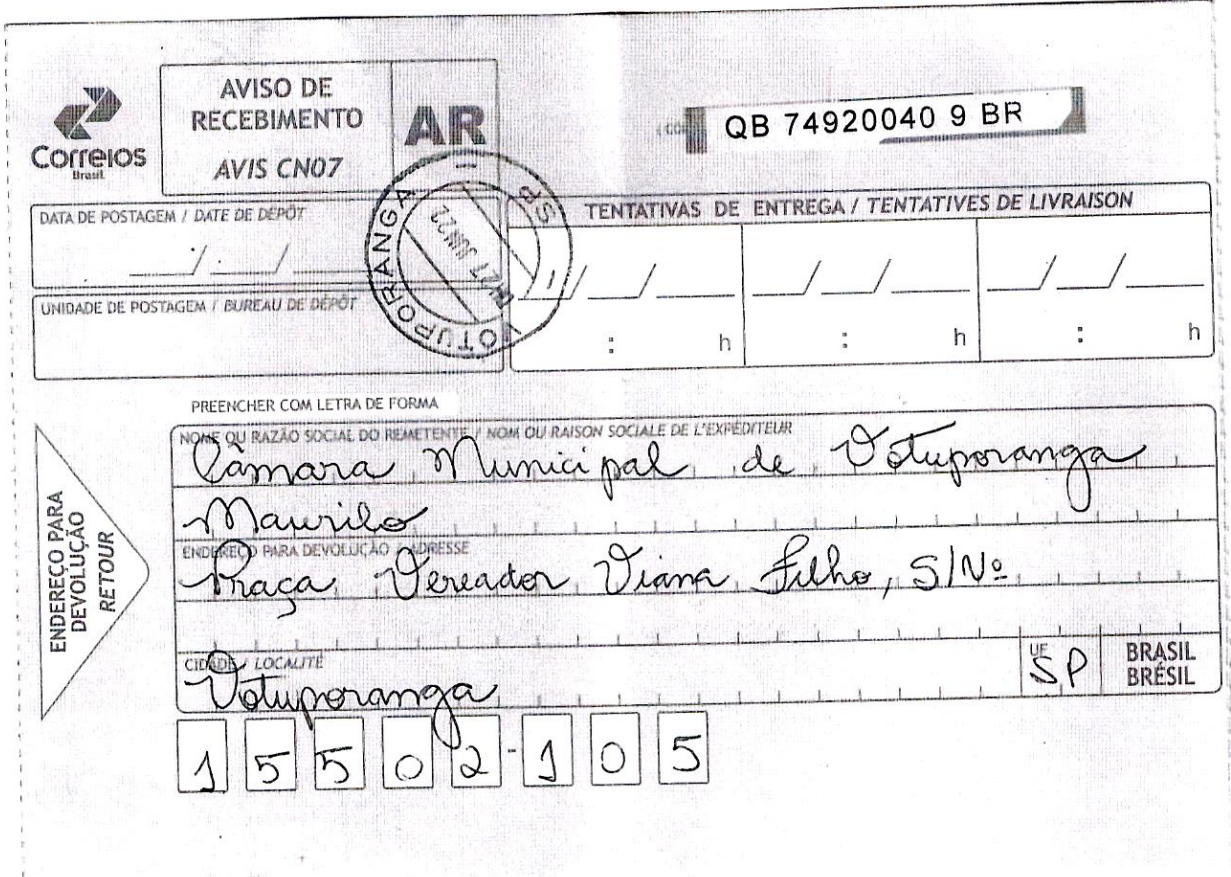 Correios
Brasil
AVISO DE
RECEBIMENTO
AVIS CN07
AR
QB 74920040 9 BR
DATA DE POSTAGEM / DATE DE DÉPÔT
__/__/__
UNIDADE DE POSTAGEM / BUREAU DE DÉPÔT
VOTUPORANGA
SP
27 JUN 22
TENTATIVAS DE ENTREGA / TENTATIVES DE LIVRAISON
__/__/__ __/__/__ __/__/__
: h : h : h
PREENCHER COM LETRA DE FORMA
NOME OU RAZÃO SOCIAL DO REMETENTE / NOM OU RAISON SOCIALE DE L'EXPÉDITEUR
Câmara Municipal de Votuporanga
Maurilo
ENDEREÇO PARA DEVOLUÇÃO / ADRESSE
Praça Vereador Viana Filho, S/Nº
CIDADE / LOCALITÉ
Votuporanga
UF
SP
BRASIL
BRÉSIL
15502-105
ENDEREÇO PARA
DEVOLUÇÃO
RETOUR